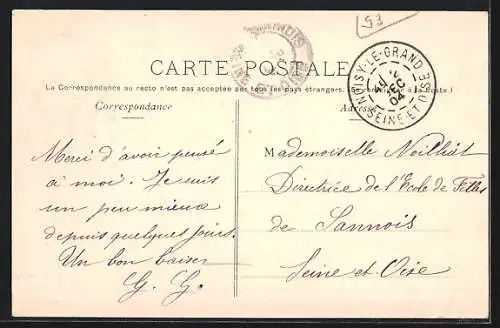 93
CARTE POSTALE
La Correspondance au recto n'est pas acceptée par tous les pays étrangers. (Se renseigner à la Poste.)
Correspondance
Adresse
NOISY-LE-GRAND
DEC
04
SEINE-ET-OISE
Merci d'avoir pensé
à moi. Je suis
un peu mieux
depuis quelques jours.
Un bon baiser
G. G.
Mademoiselle Noilliat
Directrice de l'Ecole de Filles
de Sannois
Seine et Oise